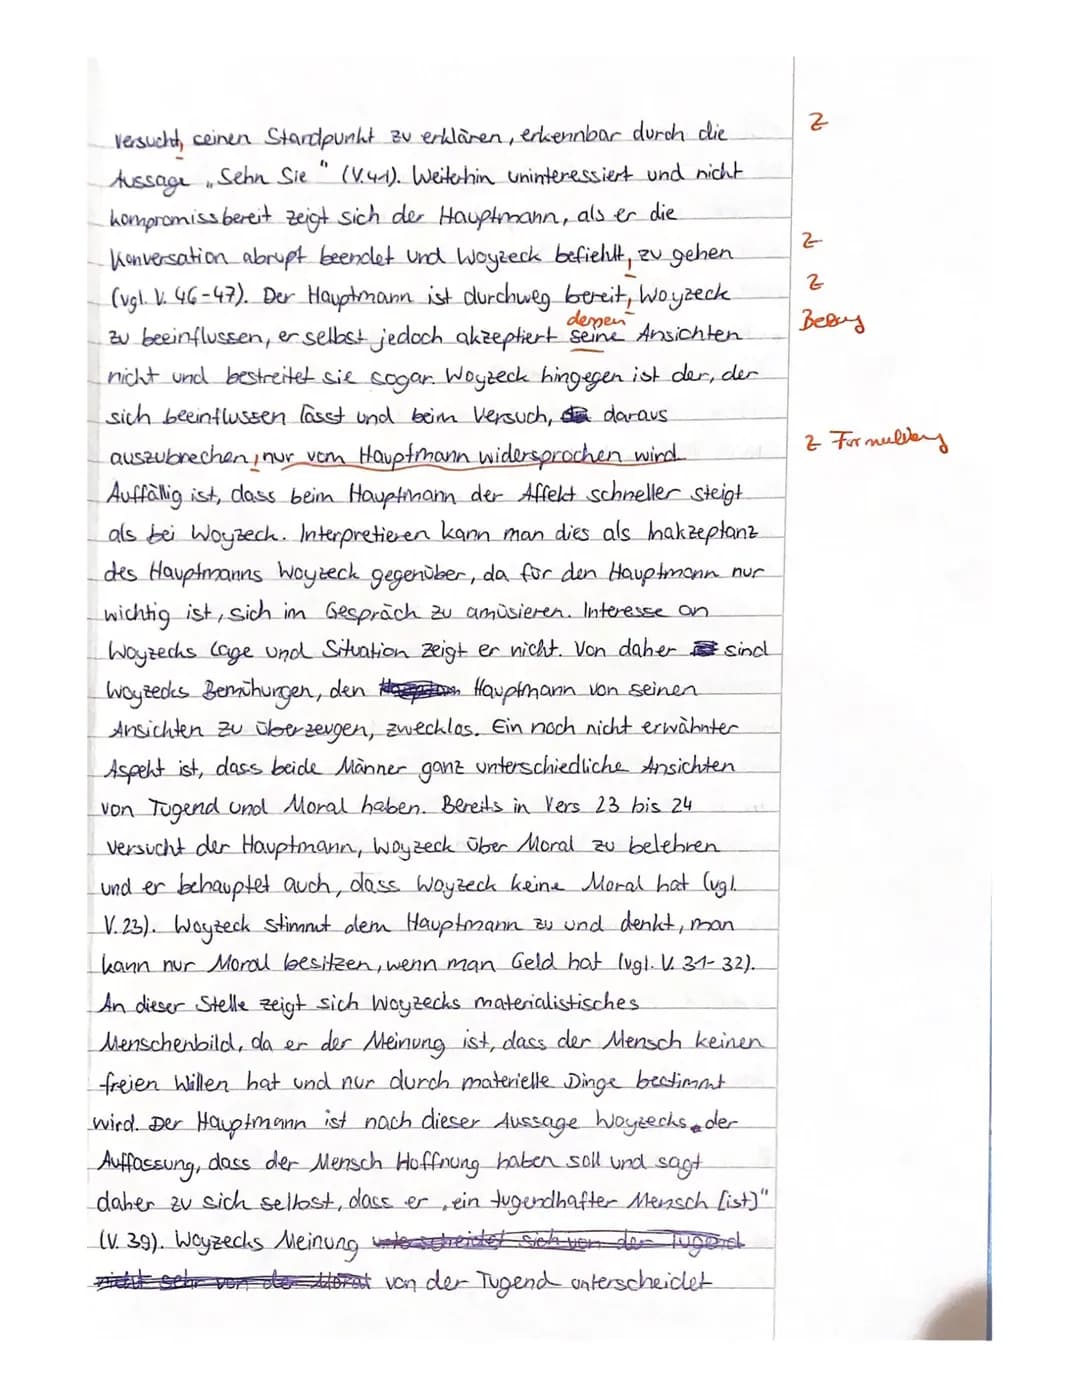 versucht, seinen Standpunkt zu erklären, erkennbar durch die
Z
Aussage „Sehn Sie" (V.41). Weiterhin uninteressiert und nicht
kompromissbereit zeigt sich der Hauptmann, als er die
Konversation abrupt beendet und Woyzeck befiehlt, zu gehen
Z
(vgl. V. 46-47). Der Hauptmann ist durchweg bereit, Woyzeck
Z
dessen
zu beeinflussen, er selbst jedoch akzeptiert seine Ansichten
Bezug
nicht und bestreitet sie sogar. Woyzeck hingegen ist der, der
sich beeinflussen lässt und beim Versuch, daraus
auszubrechen, nur vom Hauptmann widersprochen wird.
Z Formulierung
Auffällig ist, dass beim Hauptmann der Affekt schneller steigt
als bei Woyzeck. Interpretieren kann man dies als Inakzeptanz
des Hauptmanns Woyzeck gegenüber, da für den Hauptmann nur
wichtig ist, sich im Gespräch zu amüsieren. Interesse an
Woyzecks Lage und Situation zeigt er nicht. Von daher sind
Woyzecks Bemühungen, den Hauptmann von seinen
Ansichten zu überzeugen, zwecklos. Ein noch nicht erwähnter
Aspekt ist, dass beide Männer ganz unterschiedliche Ansichten
von Tugend und Moral haben. Bereits in Vers 23 bis 24
versucht der Hauptmann, Woyzeck über Moral zu belehren
und er behauptet auch, dass Woyzeck keine Moral hat (vgl.
V. 23). Woyzeck stimmt dem Hauptmann zu und denkt, man
kann nur Moral besitzen, wenn man Geld hat (vgl. V. 31-32).
An dieser Stelle zeigt sich Woyzecks materialistisches
Menschenbild, da er der Meinung ist, dass der Mensch keinen
freien Willen hat und nur durch materielle Dinge bestimmt
wird. Der Hauptmann ist nach dieser Aussage Woyzecks der
Auffassung, dass der Mensch Hoffnung haben soll und sagt
daher zu sich selbst, dass er „ein tugendhafter Mensch [ist]"
(V. 39). Woyzecks Meinung unterscheidet sich von der Tugend
nicht sehr von der Moral von der Tugend unterscheidet